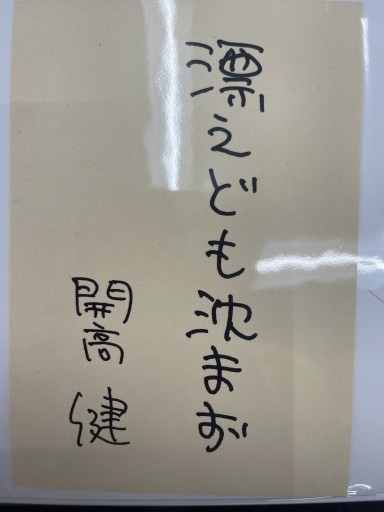 漂えども沈まず
開高健